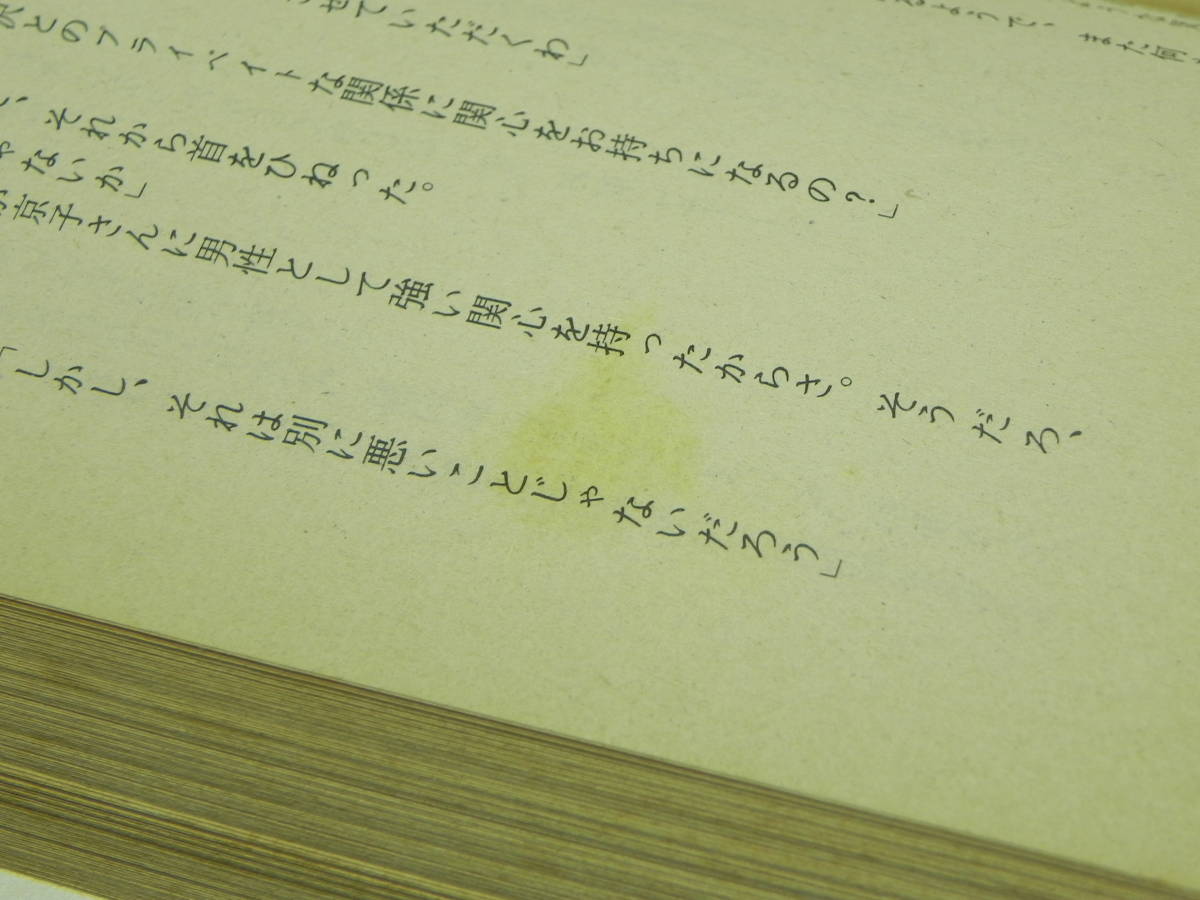 ようで、また何
せていただくわ」
とのプライベイトな関係に関心をお持ちになるの?」
、それから首をひねった。
ないか」
京子さんに男性として強い関心を持ったからさ。そうだろ、
「しかし、それは別に悪いことじゃないだろう」